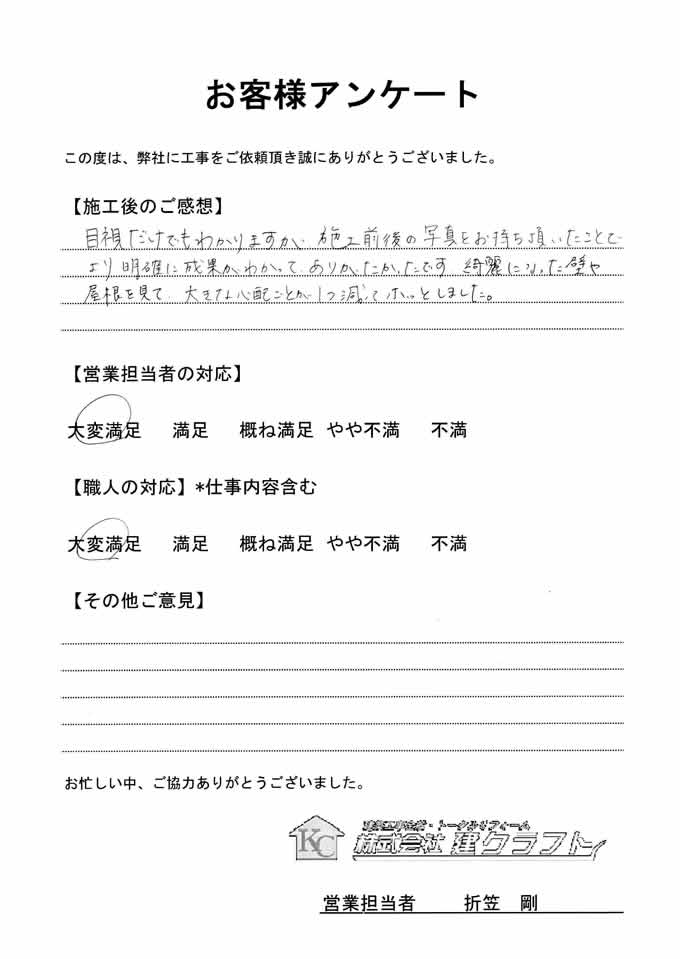 お客様アンケート
この度は、弊社に工事をご依頼頂き誠にありがとうございました。
【施工後のご感想】
目視だけでもわかりますが、施工前後の写真をお持ち頂いたことで
より明確に成果がわかって、ありがたかったです 綺麗になった壁や
屋根を見て、大きな心配ごとが1つ減ってホッとしました。
【営業担当者の対応】
大変満足 満足 概ね満足 やや不満 不満
【職人の対応】*仕事内容含む
大変満足 満足 概ね満足 やや不満 不満
【その他ご意見】
お忙しい中、ご協力ありがとうございました。
KC
・トータルリフォーム
株式会社 建クラフト
営業担当者 折笠 剛